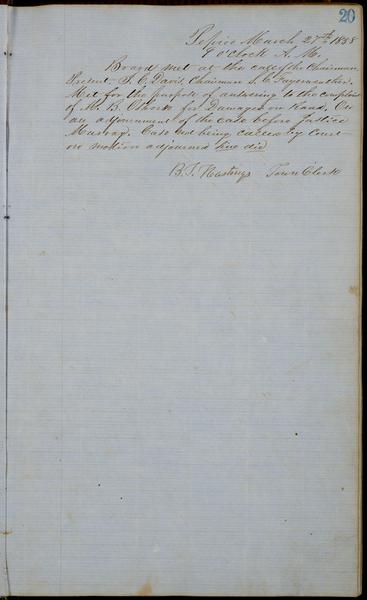 20
Pepin March 27th 1888
9 o'clock A. M.
Board met at the call of the Chairman
Present J. C. Davis Chairman
Met for the purpose of answering to the complaint
of M. B. for Damages on Road, On
an adjournment of the case before Justice
Murray. Case not being called by Court
on motion adjourned sine die
B. F. Hastings Town Clerk